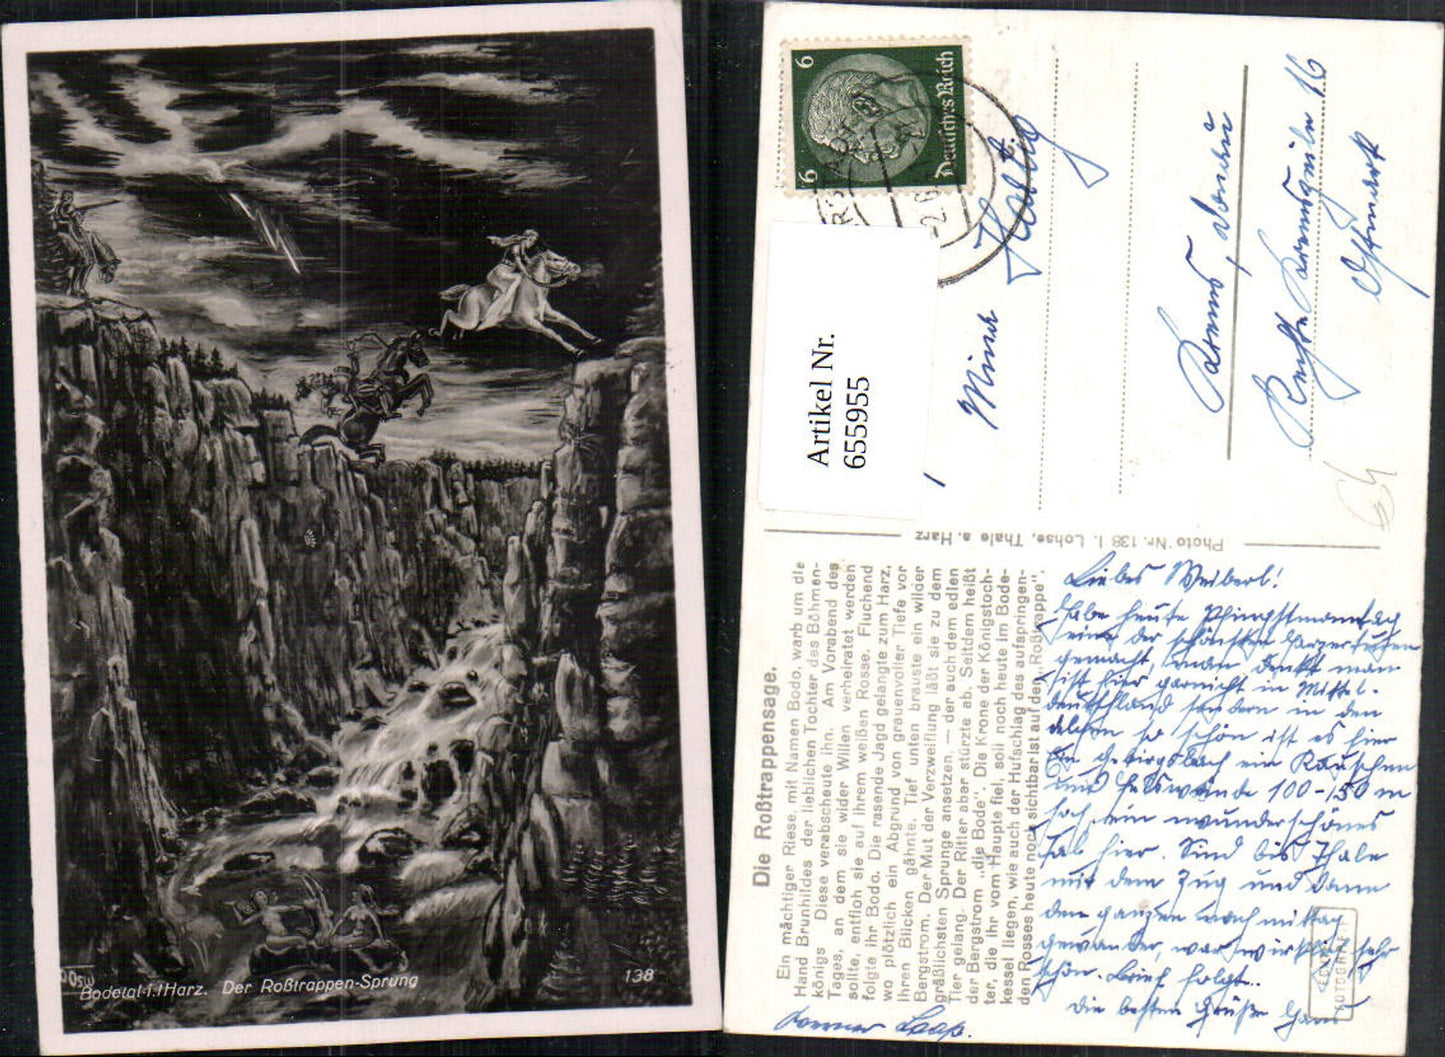 Bodetal i./Harz. Der Roßtrappen-Sprung
138
6
6
Deutsches Reich
Artikel Nr.
6555955
Photo Nr. 138 I. Lohse, Thale a. Harz
Die Roßtrappensage.
Ein mächtiger Riese, mit Namen Bodo, warb um die
Hand Brunhildes der lieblichen Tochter des Böhmen-
königs Diese verabscheute ihn. Am Vorabend des
Tages, an dem sie wider Willen verheiratet werden
sollte, entfloh sie auf ihrem weißen Rosse. Fluchend
folgte ihr Bodo. Die rasende Jagd gelangte zum Harz,
wo plötzlich ein Abgrund von grauenvoller Tiefe vor
ihren Blicken gähnte. Tief unten brauste ein wilder
Bergstrom. Der Mut der Verzweiflung läßt sie zu dem
gräßlichsten Sprunge ansetzen, — der auch dem edlen
Tier gelang. Der Ritter aber stürzte ab. Seitdem heißt
der Bergstrom „die Bode“. Die Krone der Königstoch-
ter, die ihr vom Haupte fiel, soll noch heute im Bode-
kessel liegen, wie auch der Hufschlag des aufspringen-
den Rosses heute noch sichtbar ist auf den „Roßtrappe“.
Liebes Weiberl!
Habe heute Pfingstmontag
eine der schönsten Harzertouren
gemacht, man denkt man
ist hier garnicht in Mittel-
deutschland sondern in den
Alpen so schön ist es hier
Ein Gebirgsbach ein Rauschen
und Felswände 100-150 m
hoch, ein wunderschönes
Tal hier. Sind bis Thale
mit dem Zug und dann
den ganzen Nachmittag
gewandert, war wirklich sehr
schön. Brief folgt.
Die besten Grüße Hans